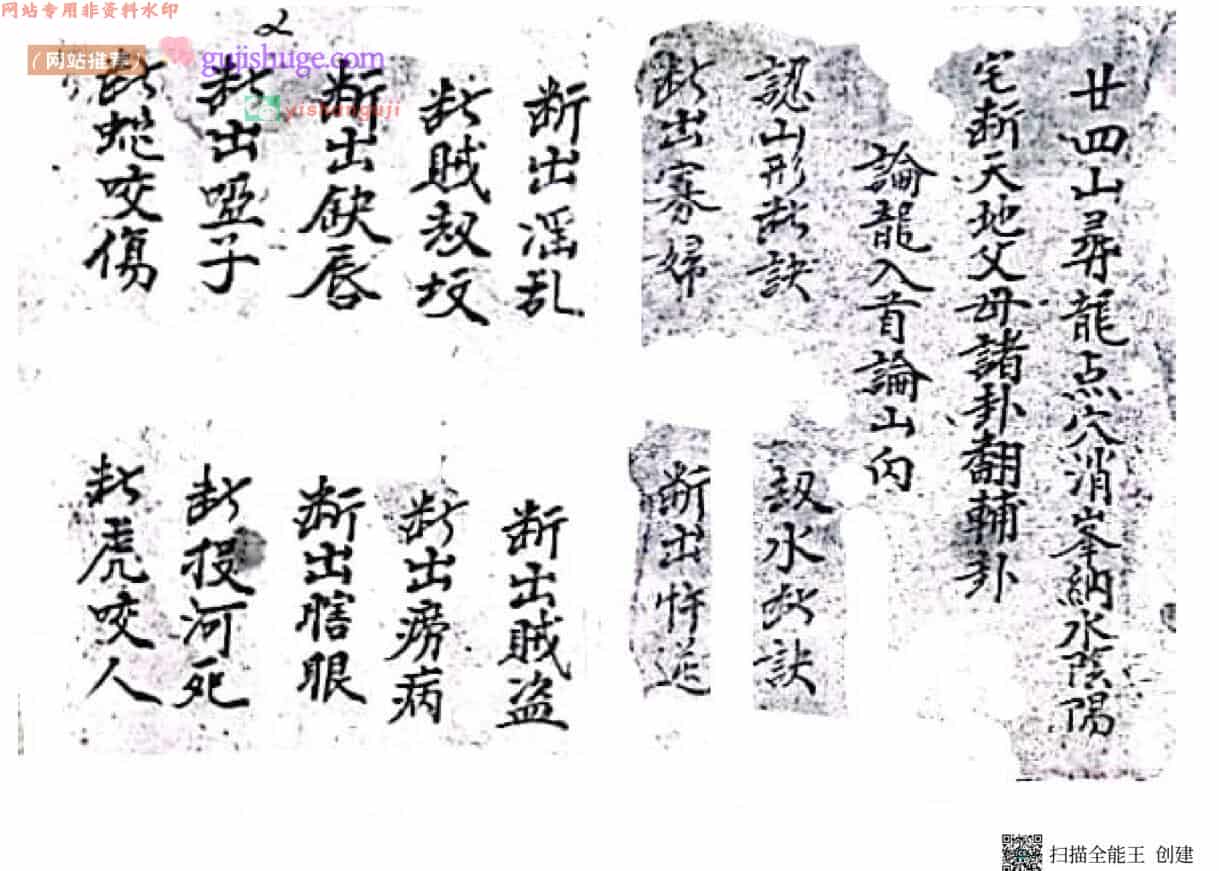 网站专用非资料水印
(网站推荐)
gujishuge.com
yishanguji
2
廿四山尋龍点穴消峯納水陰陽
宅断天地父母諸卦翻輔卦
論龍入首論山向
認山形断訣
認水断訣
断出寡婦
断出忤逆
断出淫乱
断出賊盗
断賊刼坟
断出痨病
断出缺唇
断出瞎眼
断出啞子
断投河死
断蛇咬傷
断虎咬人
扫描全能王 创建